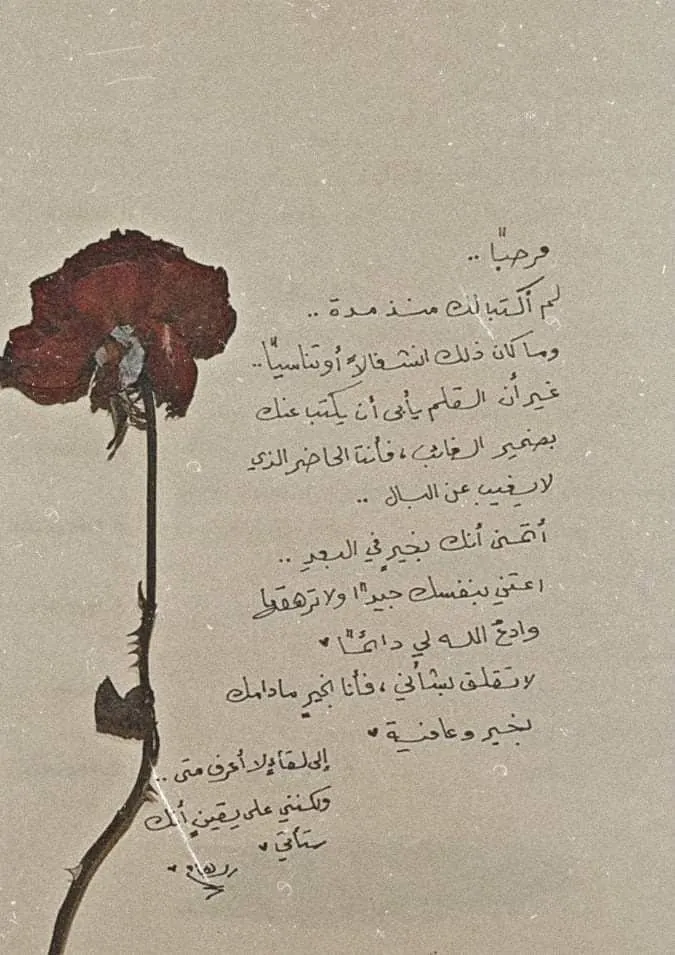 مرحبًا ..
لم أكتب لك منذ مدة ..
وما كان ذلك انشغالاً أو تناسيًا ..
غير أن القلم يأبى أن يكتب عنك
بضمير الغائب ، فأنت الحاضر الذي
لا يغيب عن البال ..
أتمنى أنك بخيرٍ في البعدِ ..
اعتني بنفسك جيدًا ولا ترهقها
وادعُ الله لي دائمًا ♥
لا تقلق بشأني ، فأنا بخيرٍ مادامك
بخير وعافية ♥
إلى لقاءٍ لا أعرف متى ..
ولكنني على يقينٍ أنك
ستأتي ♥